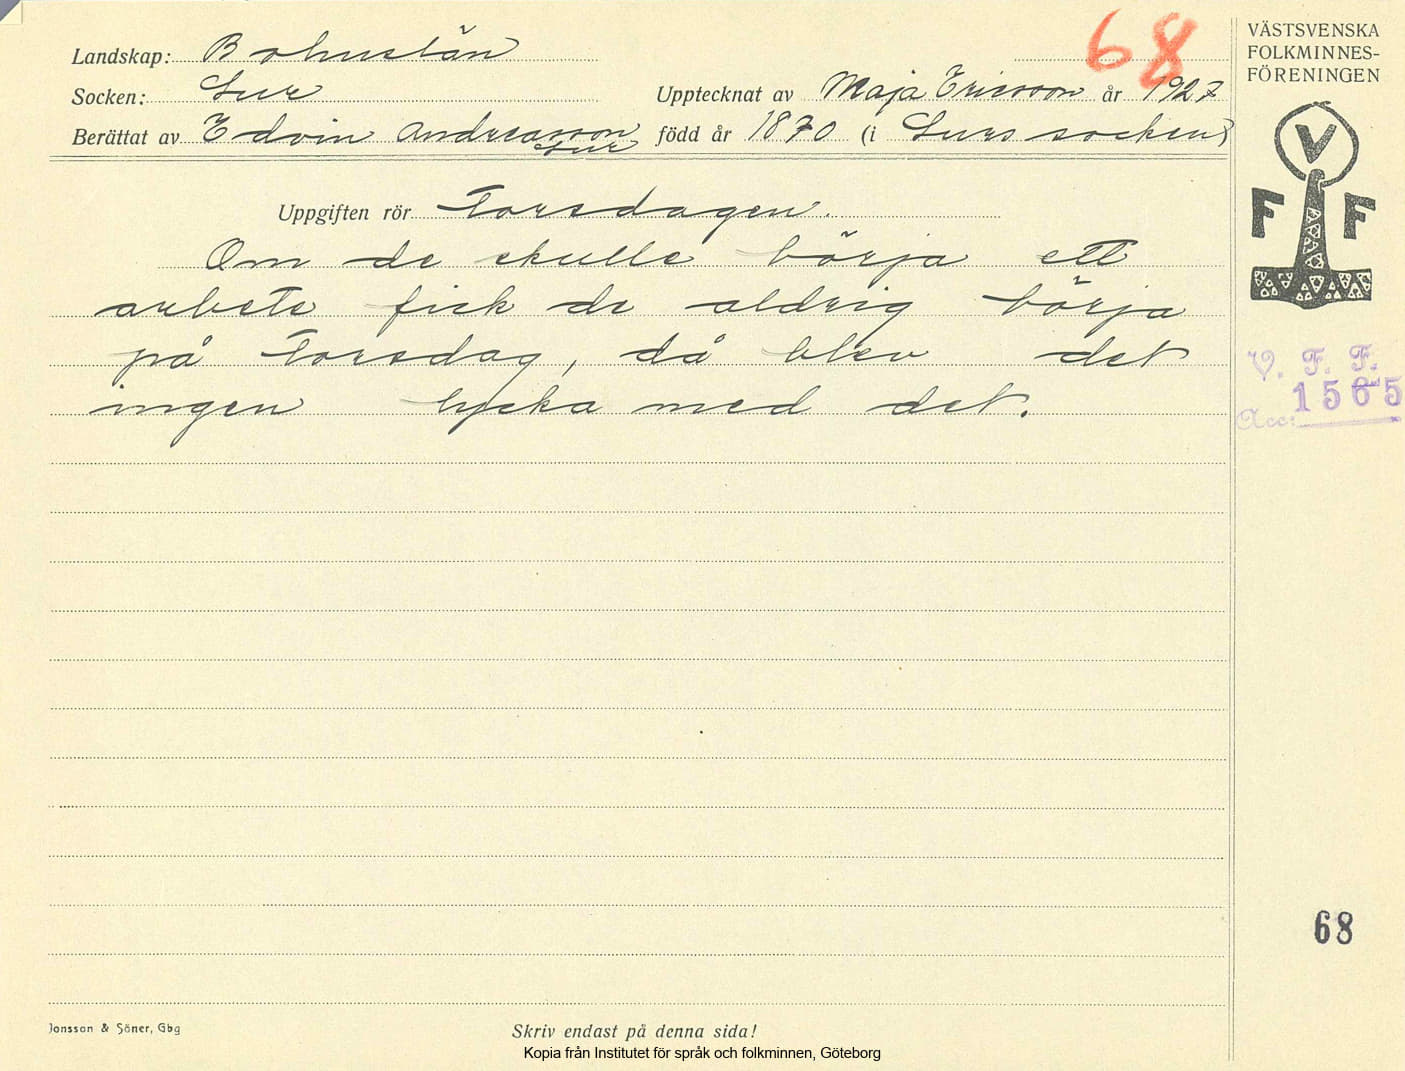 68
VÄSTSVENSKA
FOLKMINNES-
FÖRENINGEN
Landskap: Bohuslän
Socken: Lur
Upptecknat av Maja Ericsson år 1927
Berättat av Edvin Andreasson
Lur
född år 1870 (i Lurs socken)
V
F F
Uppgiften rör Torsdagen.
Om de skulle börja ett
arbete fick de aldrig börja
på Torsdag, då blev det
ingen lycka med det.
V. F. F.
Acc: 1565
68
Jonsson & Söner, Gbg
Skriv endast på denna sida!
Kopia från Institutet för språk och folkminnen, Göteborg